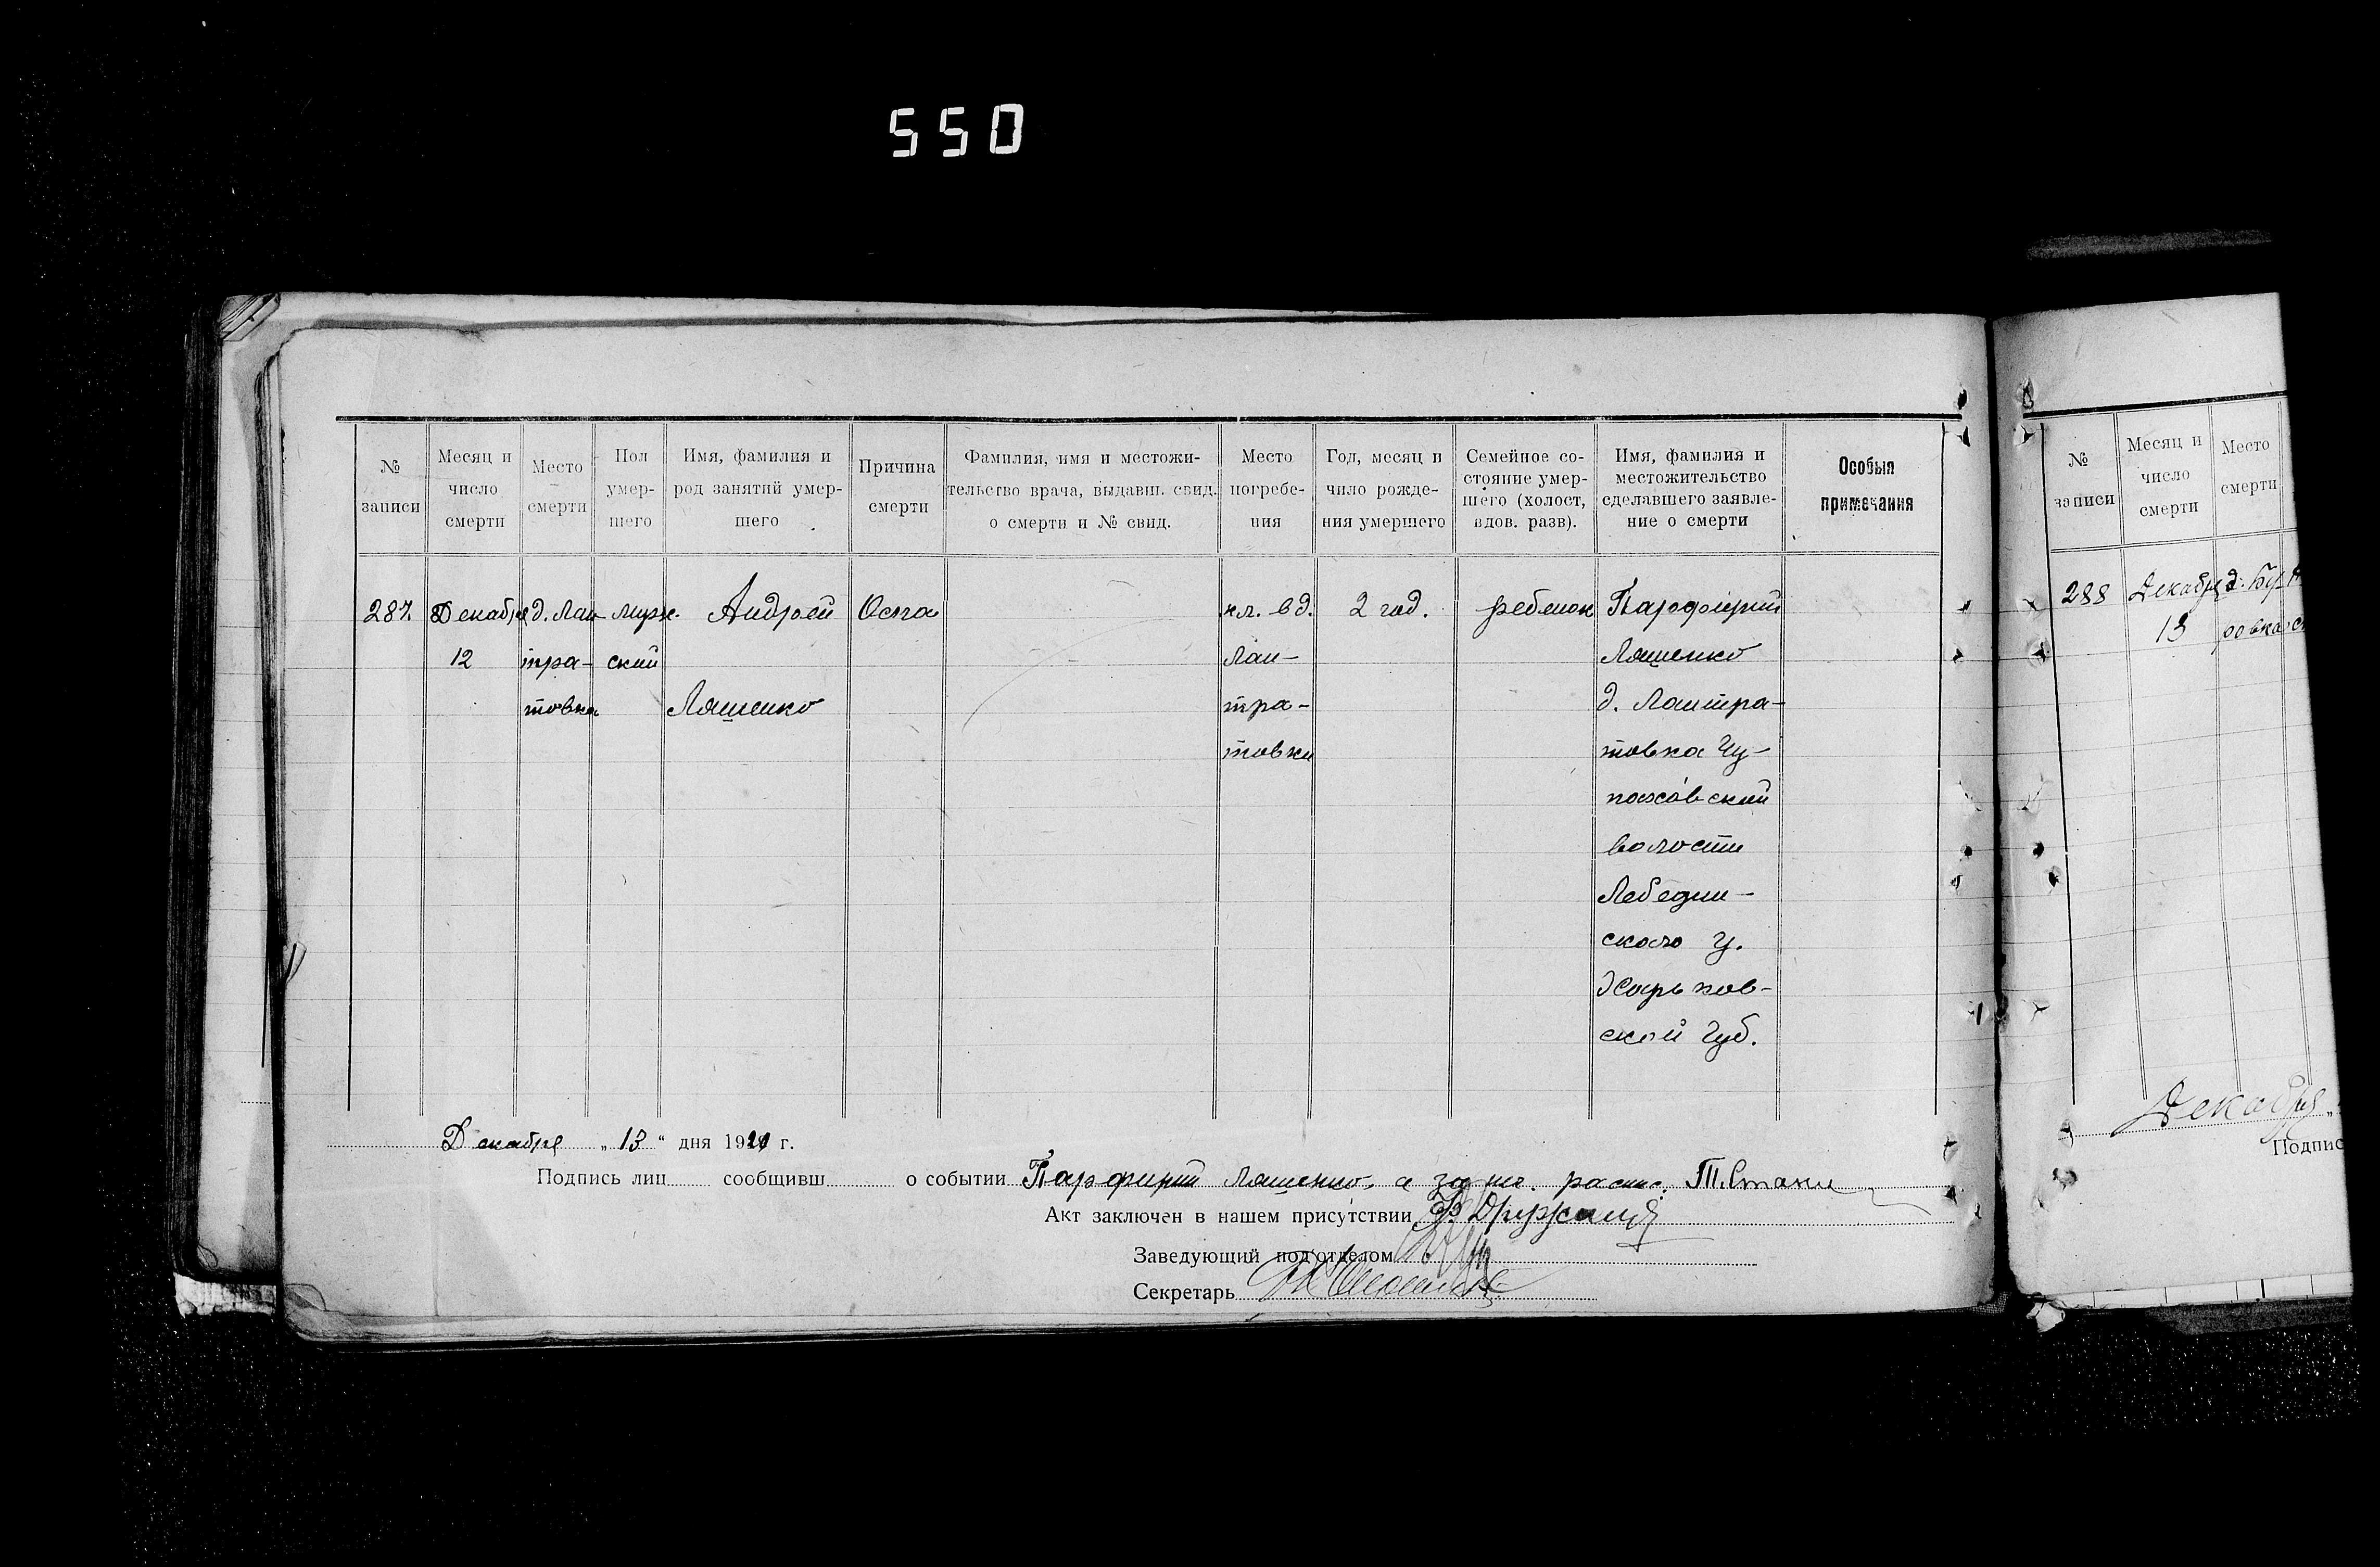 550
№ записи
Месяц и число смерти
Место смерти
Пол умер- шего
Имя, фамилия и род занятий умер- шего
Причина смерти
Фамилия, имя и местожи- тельство врача, выдавш. свид. о смерти и № свид.
Место погребе- ния
Год, месяц и чило рожде- ния умершего
Семейное со- стояние умер- шего (холост, вдов. разв).
Имя, фамилия и местожительство сделавшего заявле- ние о смерти
Особыя примечания
287.
Декабря
12
д. Лан-
тра-
товка
Мужс-
ский
Андрей
Ляшенко
Оспа
кл. в д.
Лан-
тра-
товки
2 год.
ребенок
Парфирий
Ляшенко
д. Лантра-
товка Чу-
паховский
волости
Лебедин-
ского у.
Харьков-
ской губ.
Декабря „ 13 “ дня 1920 г.
Подпись лиц сообщивш о событии Парфирий Ляшенко, а за не. распис.
Акт заключен в нашем присутствии
Заведующий под'отделом
Секретарь
№ записи
Месяц и число смерти
Место смерти
288
Декабря
13
д.
ровка
Декабря „
Подпис